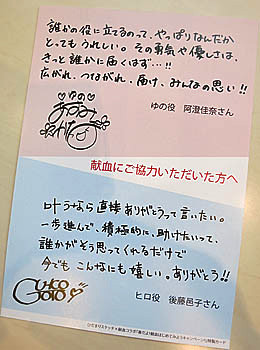 誰かの役に立てるのって、やっぱりなんだか
とってもうれしい。その勇気や優しさは、
きっと誰かに届くはず…!!
広がれ、つながれ、届け、みんなの思い!!
ゆの役　阿澄佳奈さん
献血にご協力いただいた方へ
叶うなら直接ありがとうって言いたい。
一歩進んで、積極的に、助けたいって、
誰かがそう思ってくれるだけで
今でも こんなにも 嬉しい。ありがとう!!
ヒロ役　後藤邑子さん